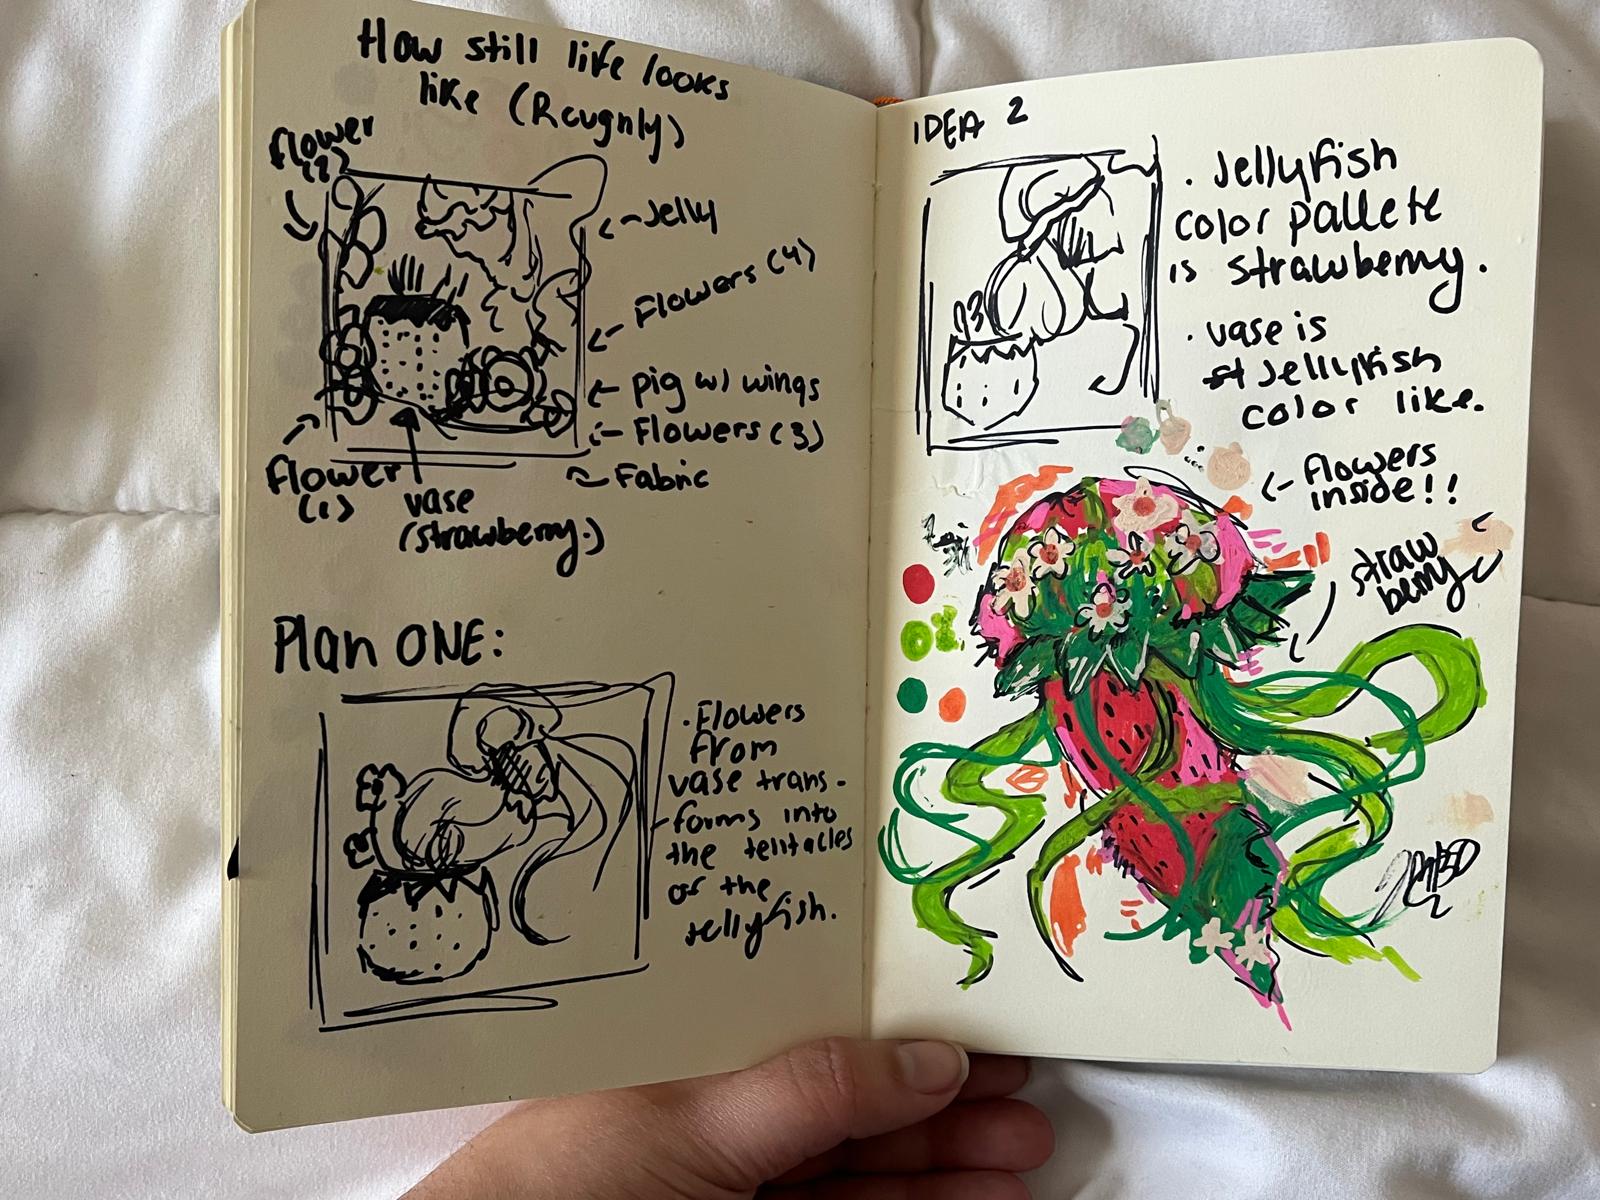 How still life looks
like (Roughly)
flower
(2)
←Jelly
← Flowers (4)
← pig w/ wings
← Flowers (3)
Fabric
flower
(1)
vase
(strawberry.)
Plan ONE:
· Flowers
from
vase trans-
forms into
the tentacles
of the
jellyfish.
IDEA 2
· Jellyfish
color pallete
is strawberry.
· vase is
Jellyfish
color like.
← flowers
inside!!
straw
berry